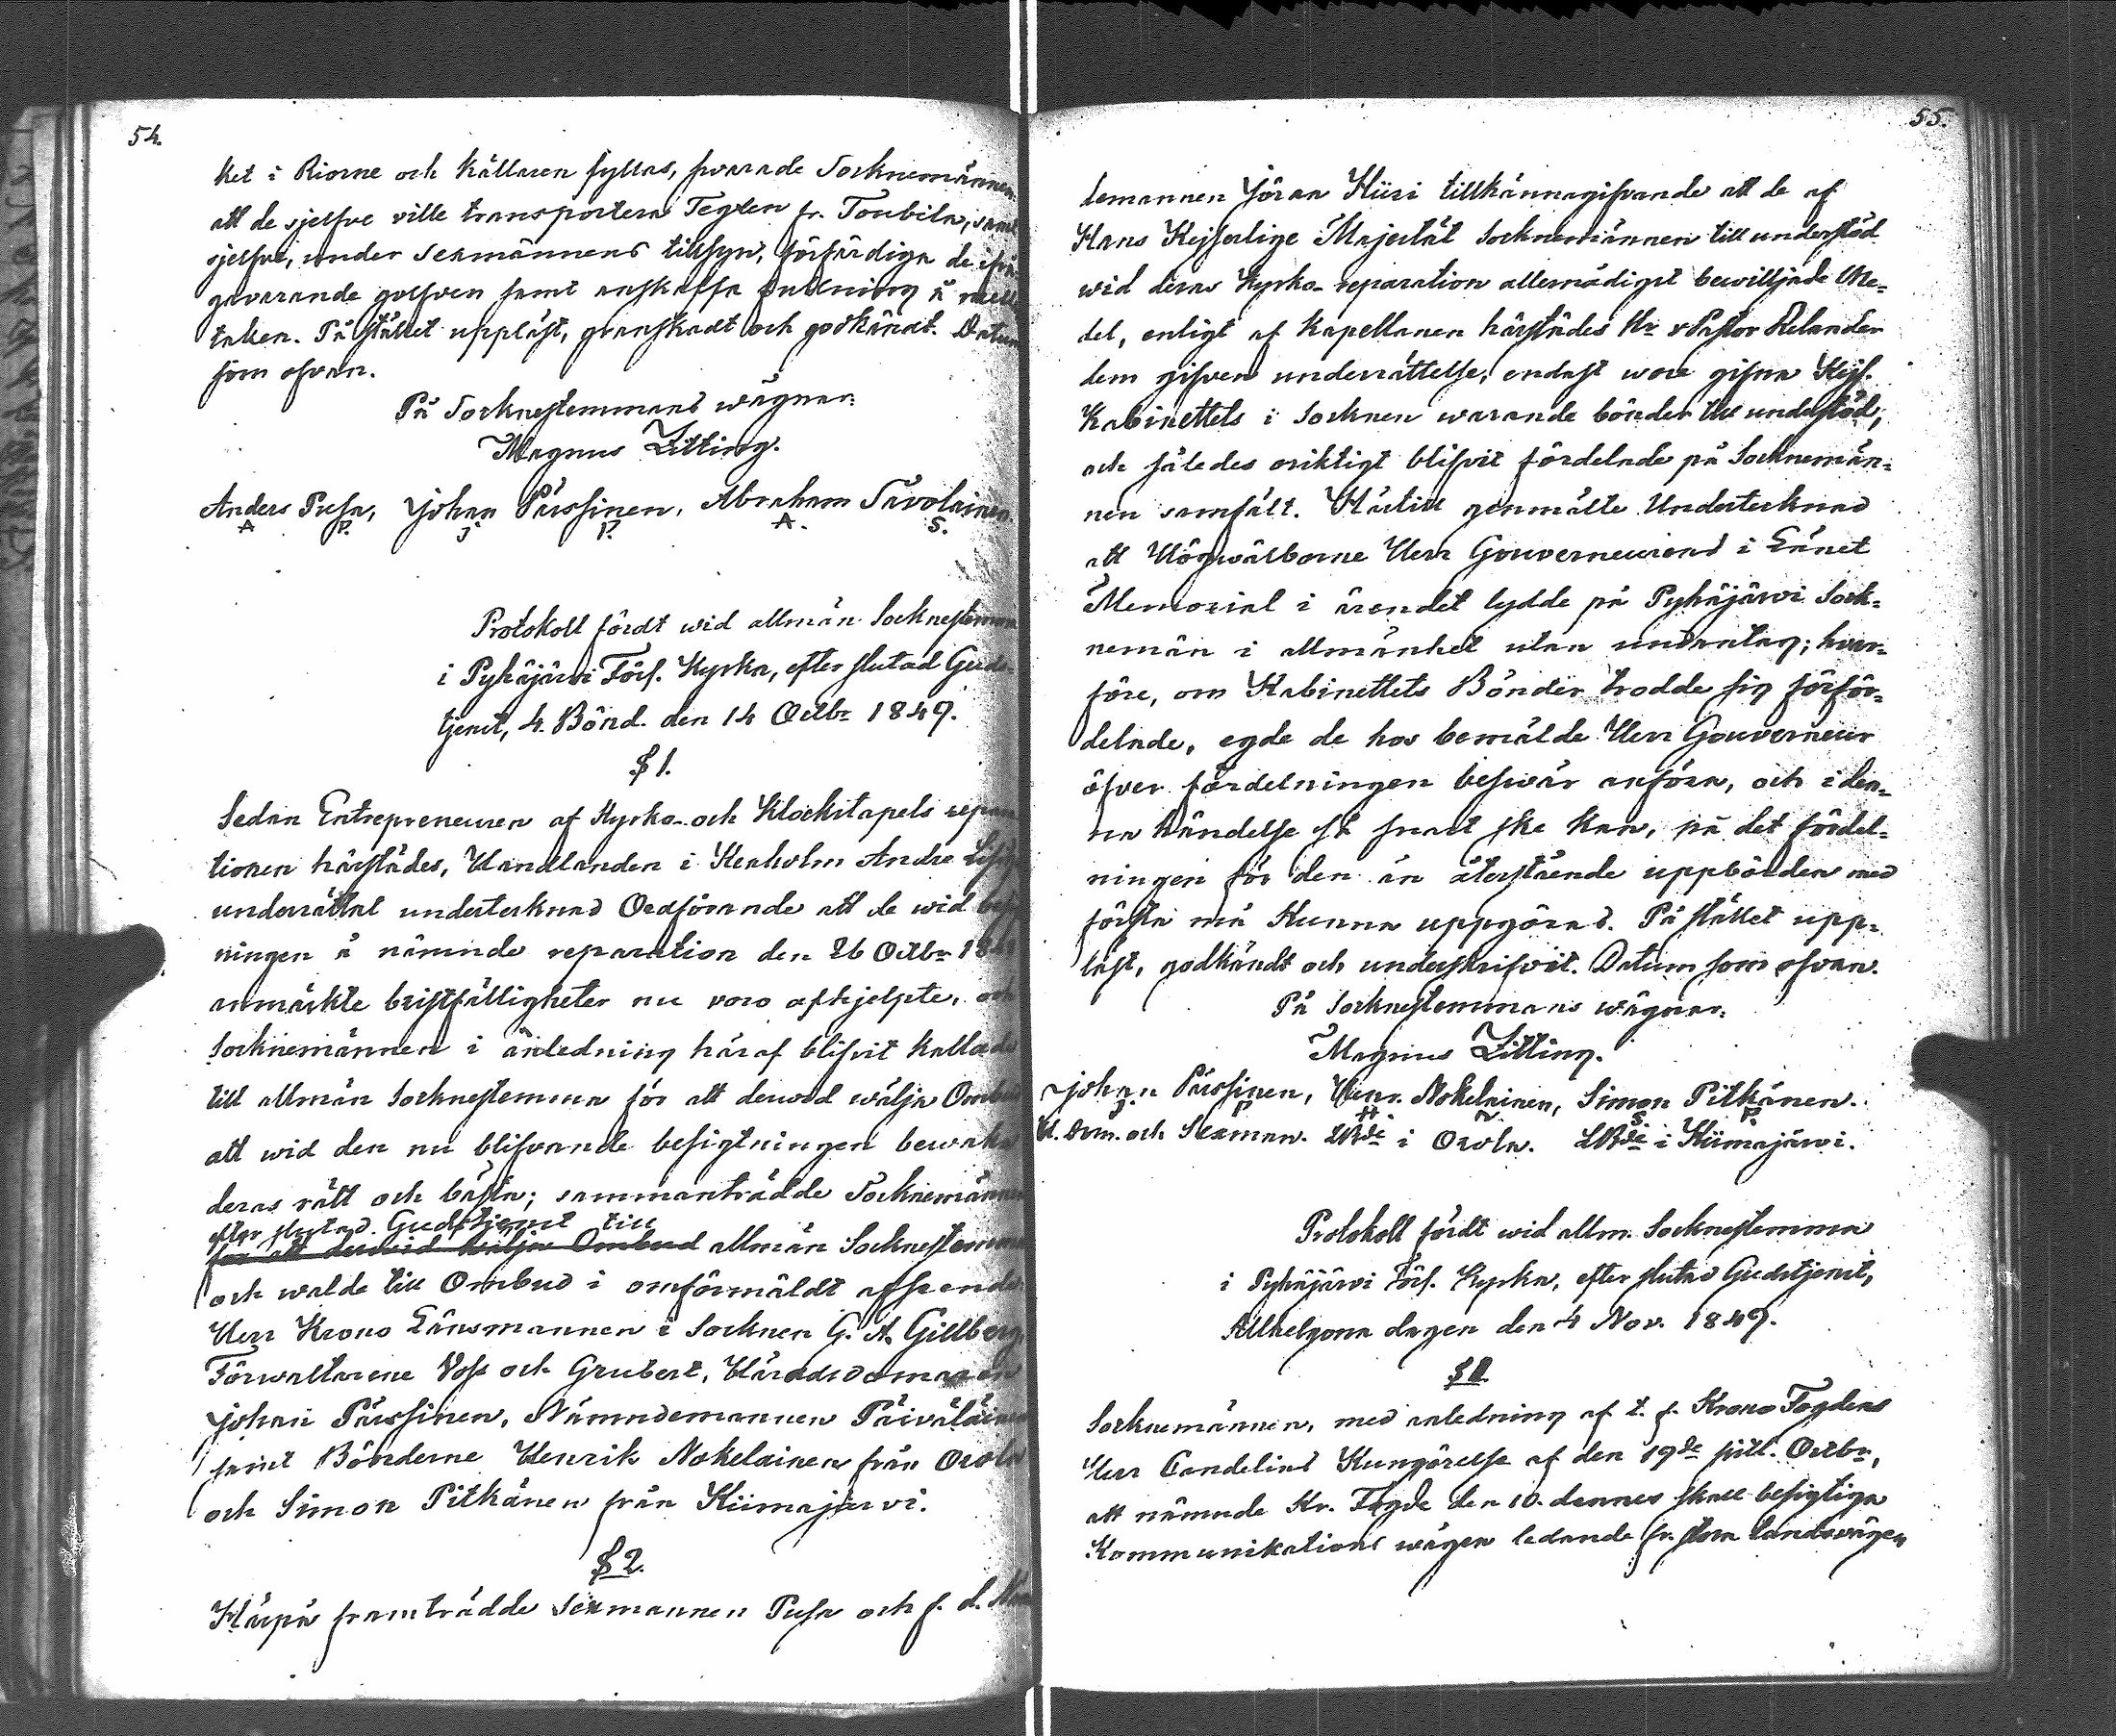 54.
ket i Riorne och källaren fyllas, svarade Socknemännen
att de sjelfve ville transportera Teglen fr. Toubila, samt
sjelfve, under Sexmännens tillsyn, förfärdiga de ifrå
gavarande golfven samt anskaffa
taken. På stället uppläst, granskadt och godkändt. Datum
som ofvan.
På Socknestemmans wägnar:
Magnus Zitting.
Anders Pusa, Johan Pärssinen, Abraham Savolainen.
A P. J P. A. S.
Protokoll fördt wid allmän Socknestemma
i Pyhäjärvi Förs. Kyrka, efter slutad Guds-
tjenst, 4. Bönd. den 14 Octbr 1849.
§ 1.
Sedan Entrepreneuren af Kyrko- och Klockstapels repara
tionen härstädes, Handlanden i Kexholm Andre
underrättat undertecknad Ordförande att de wid
ningen å nämnde reparation den 26 Octbr
anmärkte bristfälligheter nu voro afhjelpte, och
Socknemännen i anledning häraf blifvit kallade
till allmän Socknestemma för att derwid wälja Ombud
att wid den nu blifvande besigtningen bewaka
deras rätt och bästa; sammanträdde Socknemännen
efter slutad Gudstjenst till
för att derwid wälja Ombud allmän Socknestemma
och walde till Ombud i omförmäldt afseende
Herr Krono Länsmannen i Socknen G. A. Gillberg,
Förwaltarene Voss och Grubert, Häradsdomaren
Johan Pärssinen, Nämndemannen Päiväläinen
samt Bönderne Henrik Nokelainen från Orola
och Simon Pitkänen från Kiimajärvi.
§ 2.
Härpå framträdde Sexmannen Pusa och f. d. Nän
55.
demannen Jöran Hiiri tillkännagifvande att de af
Hans Kejserlige Majestät Socknemännen till understöd
wid deras Kyrko-reparation allernådigst bewilljade Me-
del, enligt af Kapellanen härstädes Hr v Pastor Relander
dem gifven underrättelse, endast wore gifna Kejs.
Kabinettets i Socknen warande bönder till understöd,
och således oriktigt blifvit fördelade på Socknemän-
nen samfält. Härtill genmälte Undertecknad
att Högwälborne Herr Gouverneurens i Länet
Memorial i ärendet lydde på Pyhäjärvi Sock-
nemän i allmänhet utan undantag; hvar-
före, om Kabinettets Bönder trodde sig förför-
delade, egde de hos bemälde Herr Gouverneur
öfver fördelningen beswär anföra, och i den-
na händelse så snart ske kan, på det fördel-
ningen för den än återstående uppbörden med
första må kunna uppgöras. På stället upp-
läst, godkändt och underskrifvit. Datum som ofvan.
På Socknestemmans wägnar:
Magnus Zitting.
Johan Pärssinen, Henr. Nokelainen, Simon Pitkänen.
J P H N S P.
H. Dom. och Sexman. LBde i Orola. LBde i Kiimajärvi.
Protokoll fördt wid allm. Socknestemma
i Pyhäjärvi Förs. Kyrka, efter slutad Gudstjenst,
Allhelgona dagen den 4 Nov. 1849.
§ 1.
Socknemännen, med anledning af t. f. Krono Fogdens
Herr Candelins Kungörelse af den 19de sistl. Octbr,
att nämnde Kr. Fogde den 10. dennes skall besigtiga
Kommunikations wägen ledande fr. stora landsvägen